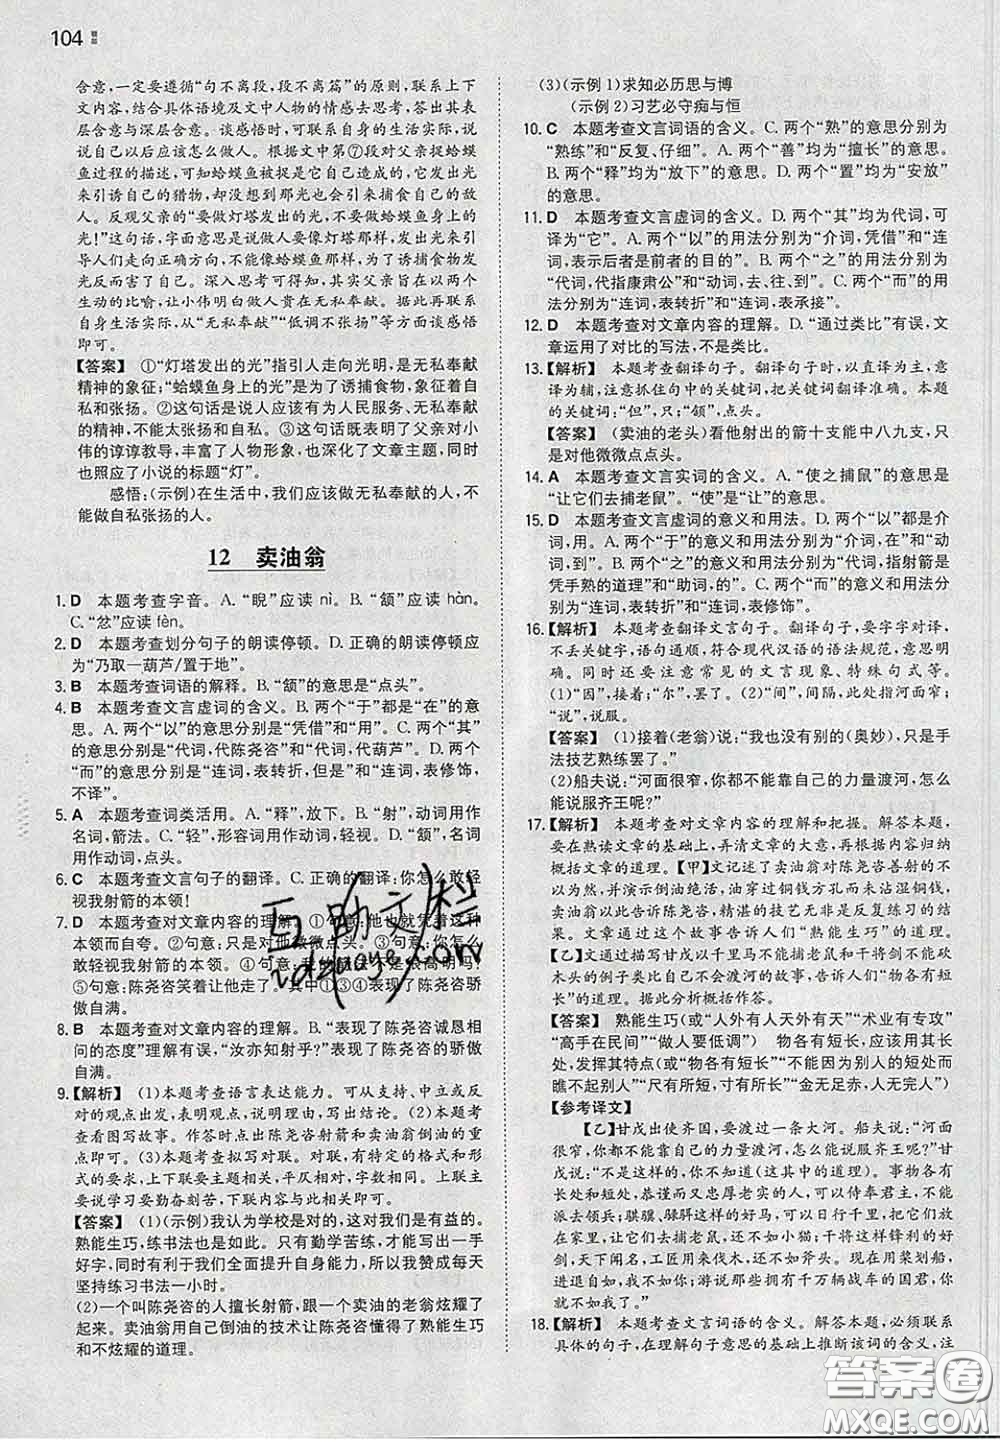 104
含意,一定要遵循“句不离段,段不离篇”的原则,联系上下
文内容,结合具体语境及文中人物的情感去思考,答出其表
层含意与深层含意。谈感悟时,可联系自身的生活实际,说
自己以后应该怎么做人。根据文中第⑦段对父亲捉蛤蟆
鱼过程的描述,可知蛤蟆鱼就是它自己造成的,它发出光
来引诱自己的猎物,不曾想到那光也会引来捕食自己的敌
人。反观父亲的“要做灯塔发出的光,不做蛤蟆鱼身上的
光!”这句话,字面意思是说做人要像灯塔发出的光,默默
引导人们走向正确道路,不能像蛤蟆鱼那样,为了诱捕食物发
光而过度张扬自己。深入思考可得知,其实父亲是在以两个
生动的比喻,让小伟明白做人贵在无私奉献。据此再联系
自身生活实际,从“无私奉献”“低调不张扬”等方面谈感悟
即可。
【答案】 ①“灯塔发出的光”指引人走向光明,是无私奉献
精神的象征;“蛤蟆鱼身上的光”是为了诱捕食物,象征着自
私和张扬。②这句话是说人应该有为人民服务、无私奉献
的精神,不能太张扬和自私。③这句话既表明了父亲对小
伟的谆谆教导,丰富了人物形象,也深化了文章主题,同时
也照应了小说的标题“灯”。
感悟:(示例)在生活中,我们应该做无私奉献的人,不
能做自私张扬的人。
12 卖油翁
1. D 本题考查字音。A.“睨”应读 nì。B.“颔”应读 hàn。
C.“忿”应读 fèn。
2. D 本题考查划分句子的朗读停顿。D. 正确的朗读停顿应
为“乃取一葫芦/置于地”。
3. B 本题考查词语的解释。B.“颔”的意思是“点头”。
4. B 本题考查文言虚词的含义。B. 两个“于”都是“在”的意
思。A. 两个“以”的意思分别是“凭借”和“用”。C. 两个“其”
的意思分别是“代词,代陈尧咨”和“代词,代葫芦”。D. 两个
“而”的意思分别是“连词,表转折,但是”和“连词,表修饰,
不译”。
5. A 本题考查词类活用。A.“释”,放下。B.“射”,动词用作
名词,箭法。C.“轻”,形容词用作动词,轻视。D.“颔”,名词
用作动词,点头。
6. C 本题考查文言句子的翻译。C. 正确的翻译:你怎么敢轻
视我射箭的本领!
7. D 本题考查对文章内容的理解。①句意:他也就凭着这种
本领而自夸。②句意:只是对他微微点头。③句意:你怎么
敢轻视我射箭的本领?④句意:我的箭法不是很高明吗?
⑤句意:陈尧咨笑着让他走了。其中①③④表现了陈尧咨骄
傲自满。
8. B 本题考查对文章内容的理解。B.“表现了陈尧咨诚恳相
问的态度”理解有误,“汝亦知射乎?”表现了陈尧咨的骄傲
自满。
9.【解析】 (1)本题考查语言表达能力。可从支持、中立或反
对的观点出发,表明观点,说明理由,写出结论。(2)本题考
查看图写故事。作答时点出陈尧咨射箭和卖油翁倒油的重
点即可。(3)本题考查拟写对联。对联,有特定的格式和形式
要求,上下联要突出主题,平仄相对,字数相同。上联主
要说学习要勤奋刻苦,下联内容与此相关即可。
【答案】 (1)(示例)我认为学校是对的,这对我们是有益的。
熟能生巧,练书法也是如此。只有勤学苦练,才能写出一手
好字,同时有利于我们全面提升自身能力,所以我赞成每天
坚持练习书法一小时。
(2)一个叫陈尧咨的人擅长射箭,跟一个卖油的老翁炫耀了
起来。卖油翁用自己倒油的技术让陈尧咨懂得了熟能生巧
和不炫耀的道理。
(3)(示例 1)求知必历思与博
(示例 2)习艺必守痴与恒
10. C 本题考查文言词语的含义。C. 两个“熟”的意思分别为
“熟练”和“反复、仔细”。A. 两个“善”均为“擅长”的意思。
B. 两个“释”均为“放下”的意思。D. 两个“置”均为“安放”
的意思。
11. D 本题考查文言虚词的含义。D. 两个“其”均为代词,可
译为“它”。A. 两个“以”的用法分别为“介词,凭借”和“连
词,表示后者是前者的目的”。B. 两个“之”的用法分别为
“代词,代指康肃公”和“动词,去、往、到”。C. 两个“而”的用
法分别为“连词,表转折”和“连词,表承接”。
12. D 本题考查对文章内容的理解。D.“通过类比”有误,文
章运用了对比的写法,不是类比。
13.【解析】 本题考查翻译句子。翻译句子时,以直译为主,意
译为辅,注意抓住句中的关键词,把关键词翻译准确。本题
的关键词:“但”,只;“颔”,点头。
【答案】 (卖油的老头)看他射出的箭十支能中八九支,只
是对他微微点点头。
14. A 本题考查文言实词的含义。A.“使之捕鼠”的意思是
“让它们去捕老鼠”。“使”是“让”的意思。
15. D 本题考查文言虚词的意义和用法。D. 两个“以”都是介
词,用。A. 两个“于”的意义和用法分别为“介词,在”和“介
词,对、到”。B. 两个“之”的意义和用法分别为“代词,指射箭是
凭手熟的道理”和“助词,的”。C. 两个“而”的意义和用法分
别为“连词,表转折”和“连词,表修饰”。
16.【解析】 本题考查翻译文言句子。翻译句子,要字字对译,
不丢关键字,语句通顺,符合现代汉语的语法规范,意思明
确。要注意常见的文言现象、特殊句式等。
(1)“因”,接着;“尔”,罢了。(2)“间”,间隔,此指河面窄;
“说”,说服。
【答案】 (1)接着(老翁)说:“我也没有别的(奥妙),只是手
法技艺熟练罢了。”
(2)船夫说:“河面很窄,你都不能靠自己的力量渡河,怎么
能说服齐王呢?”
17.【解析】 本题考查对文章内容的理解和把握。解答本题,
要在熟读文章的基础上,弄清文章的大意,再根据内容归纳
概括文章的道理。【甲】文记述了卖油翁对陈尧咨善射的不
以为然,并示范倒油绝活,油穿过铜钱方孔而未沾湿铜钱,
卖油翁以此告诉陈尧咨,精湛的技艺无非是反复练习的结
果。文章通过这个故事告诉人们“熟能生巧”的道理。
【乙】文通过描写甘戊以千里马不能捕老鼠和干将不能砍
木头的例子类比自己不会渡河的故事,告诉人们“物各有所
长”的道理。据此分析概括作答。
【答案】 熟能生巧(或“人外有人天外有天”“术业有专攻”
“高手在民间”“做人要低调”) 物各有短长,应该用其所
长,发挥其特点(或“物各有短长”“不能因为别人的短处而
瞧不起别人”“尺有所短,寸有所长”“金无足赤,人无完人”)
【参考译文】
【乙】甘戊出使齐国,要渡过一条大河。船夫说:“河面
很窄,你都不能靠自己的力量渡河,怎么能说服齐王呢?”甘
戊说:“不是这样的,你不知道(这其中的道理)。事物各有
长处和短处;恭谨实在而又忠厚老实的人,可以侍奉君主而不
去领兵;骐骥、騄駬这样的好马,可以日行千里,而把它们放
在家里,让它们去捕老鼠,还不如小猫;干将这样锋利的好
剑,天下闻名,工匠用来伐木,还不如斧头。现在用桨划船,
进退自如,我不如你;游说那些拥有千万辆战车的国君,你就
不如我了。”
18.【解析】 本题考查文言词语的含义。解答本题,必须联系
具体的句子,在理解句子意思的基础上推断该词的含义,注
互助文档
答案圈
MXQE.COM